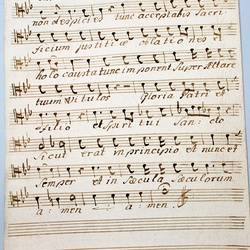 non despicies tunc aceptabis Sacri
ficium justitiæ oblationes
holocausta tunc imponent Super Altare
tuum Vitulos Gloria Patri et
Filio et Spiritui Sancto
Sicut erat in principio et nunc et
Semper et in Sæcula Sæculorum
a: men a: men.